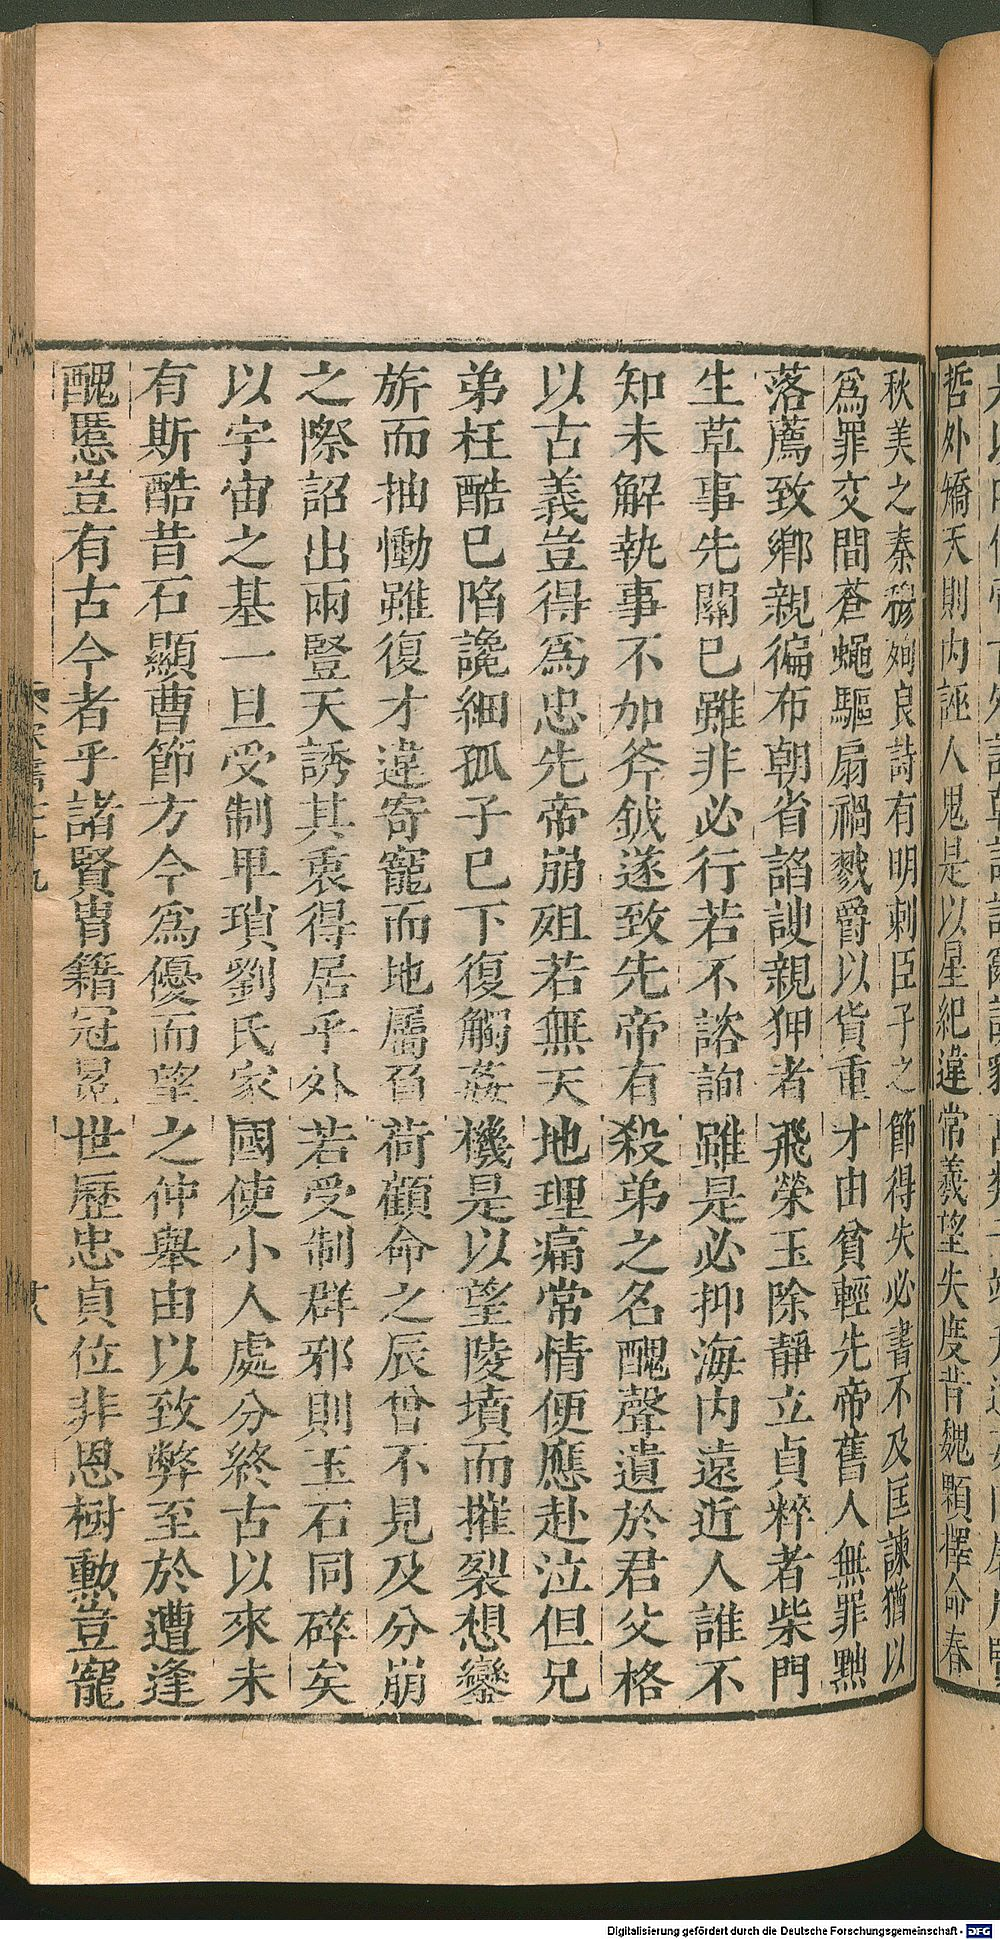 哲外矯天則内誣人鬼是以星紀違常羲望失度昔魏顆擇命春
秋美之秦穆殉良詩有明刺臣子之節得失必書不及匡諫猶以
爲罪交間蒼蠅驅扇禍戮爵以貨重才由貧輕先帝舊人無罪黜
落薦致鄉親徧布朝省諂諛親狎者飛榮玉除靜立貞粹者柴門
生草事先關已雖非必行若不諮詢雖是必抑海内遠近人誰不
知未解執事不加斧鉞遂致先帝有殺弟之名醜聲遺於君父格
以古義豈得爲忠先帝崩殂若無天地理痛常情便應赴泣但兄
弟枉酷已陷讒細孤子已下復觸姦機是以望陵墳而摧裂想鑾
旂而抽慟雖復才違寄寵而地屬負荷顧命之辰曾不見及分崩
之際詔出兩豎天誘其衷得居乎外若受制群邪則玉石同碎矣
以宇宙之基一旦受制卑瑣劉氏家國使小人處分終古以來未
有斯酷昔石顯曹節方今爲優而望之仲舉由以致弊至於遭逢
醜慝豈有古今者乎諸賢胄籍冠冕世歷忠貞位非恩樹勳豈寵
Digitalisierung gefördert durch die Deutsche Forschungsgemeinschaft - DFG